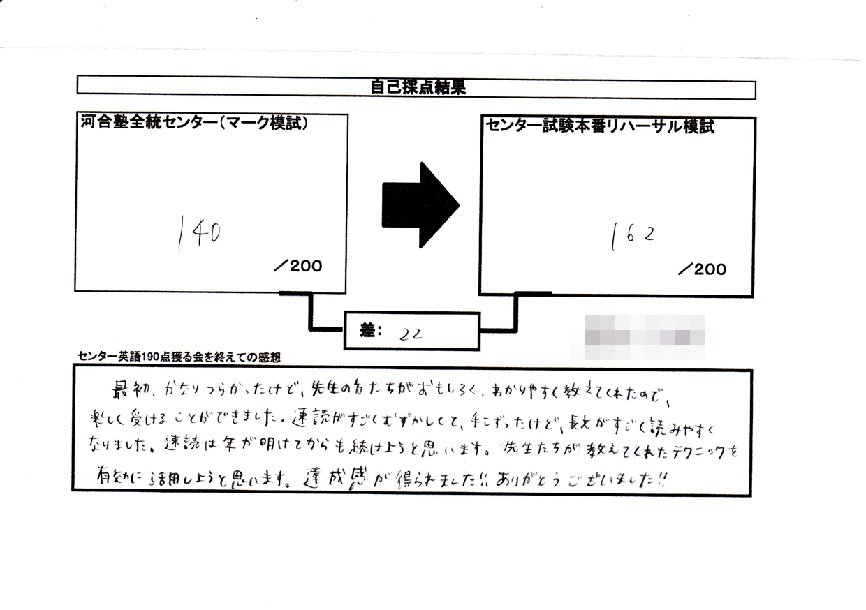 自己採点結果
河合塾全統センター（マーク模試）
140
／200
センター試験本番リハーサル模試
162
／200
差： 22
センター英語190点獲る会を終えての感想
最初、かなりつらかったけど、先生の方たちがおもしろく、わかりやすく教えてくれたので、
楽しく受けることができました。速読がすごくむずかしくて、手こずったけど、長文がすごく読みやすく
なりました。速読は年が明けてからも続けようと思います。先生たちが教えてくれたテクニックを
有効に活用しようと思います。達成感が得られました!! ありがとうございました!!